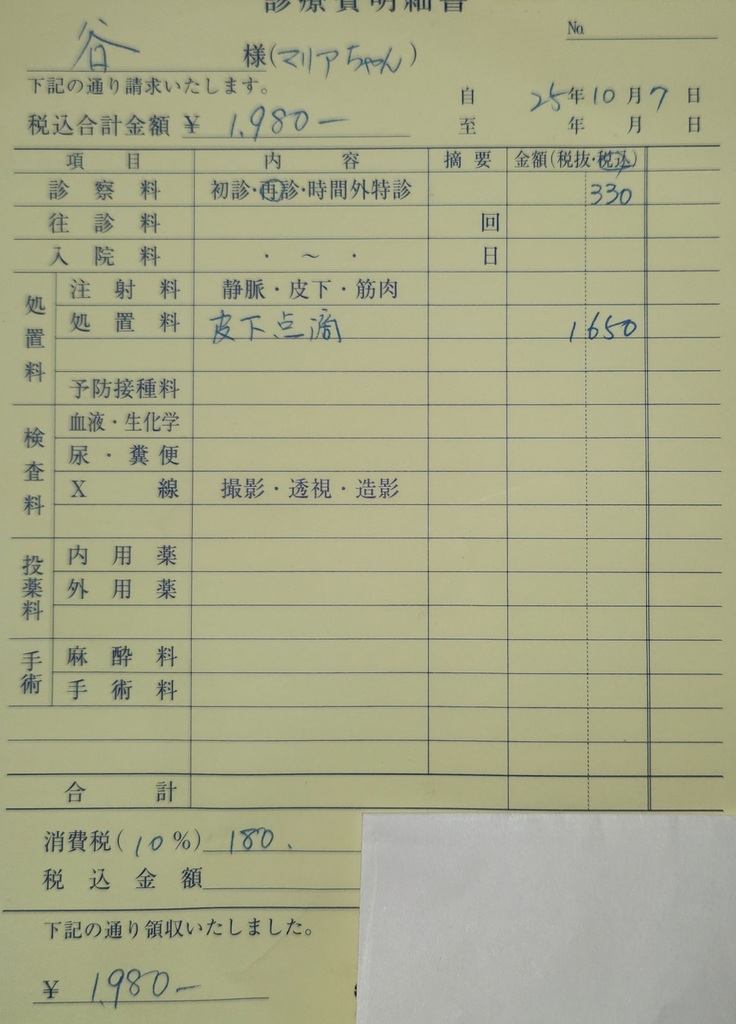 診療費明細書
No.
谷 様(マリアちゃん)
下記の通り請求いたします。
自 25年10月7日
税込合計金額 ¥ 1,980-
至 年 月 日
項目 内容 摘要 金額(税抜・税込)
診察料 初診・再診・時間外特診 330
往診料 回
入院料 ・ ~ ・ 日
処置料
注射料 静脈・皮下・筋肉
処置料 皮下点滴 1650
予防接種料
検査料
血液・生化学
尿・糞便
X線 撮影・透視・造影
投薬料
内用薬
外用薬
手術
麻酔料
手術料
合計
消費税(10%) 180.
税込金額
下記の通り領収いたしました。
¥ 1,980-